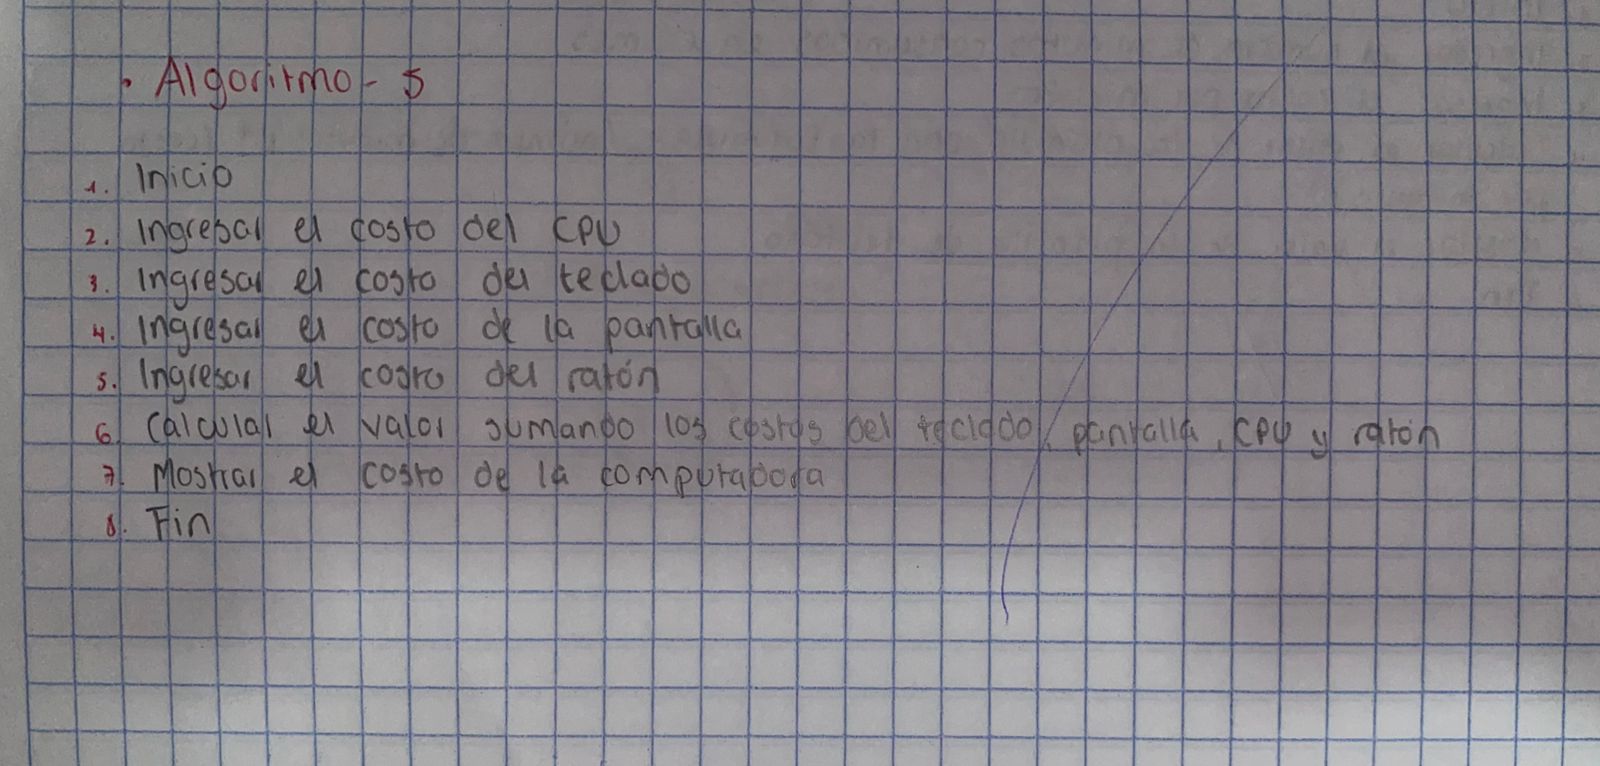 • Algoritmo - 5
1. Inicio
2. Ingresar el costo del CPU
3. Ingresar el costo del teclado
4. Ingresar el costo de la pantalla
5. Ingresar el costo del ratón
6. Calcular el valor sumando los costos del teclado, pantalla, CPU y ratón
7. Mostrar el costo de la computadora
8. Fin